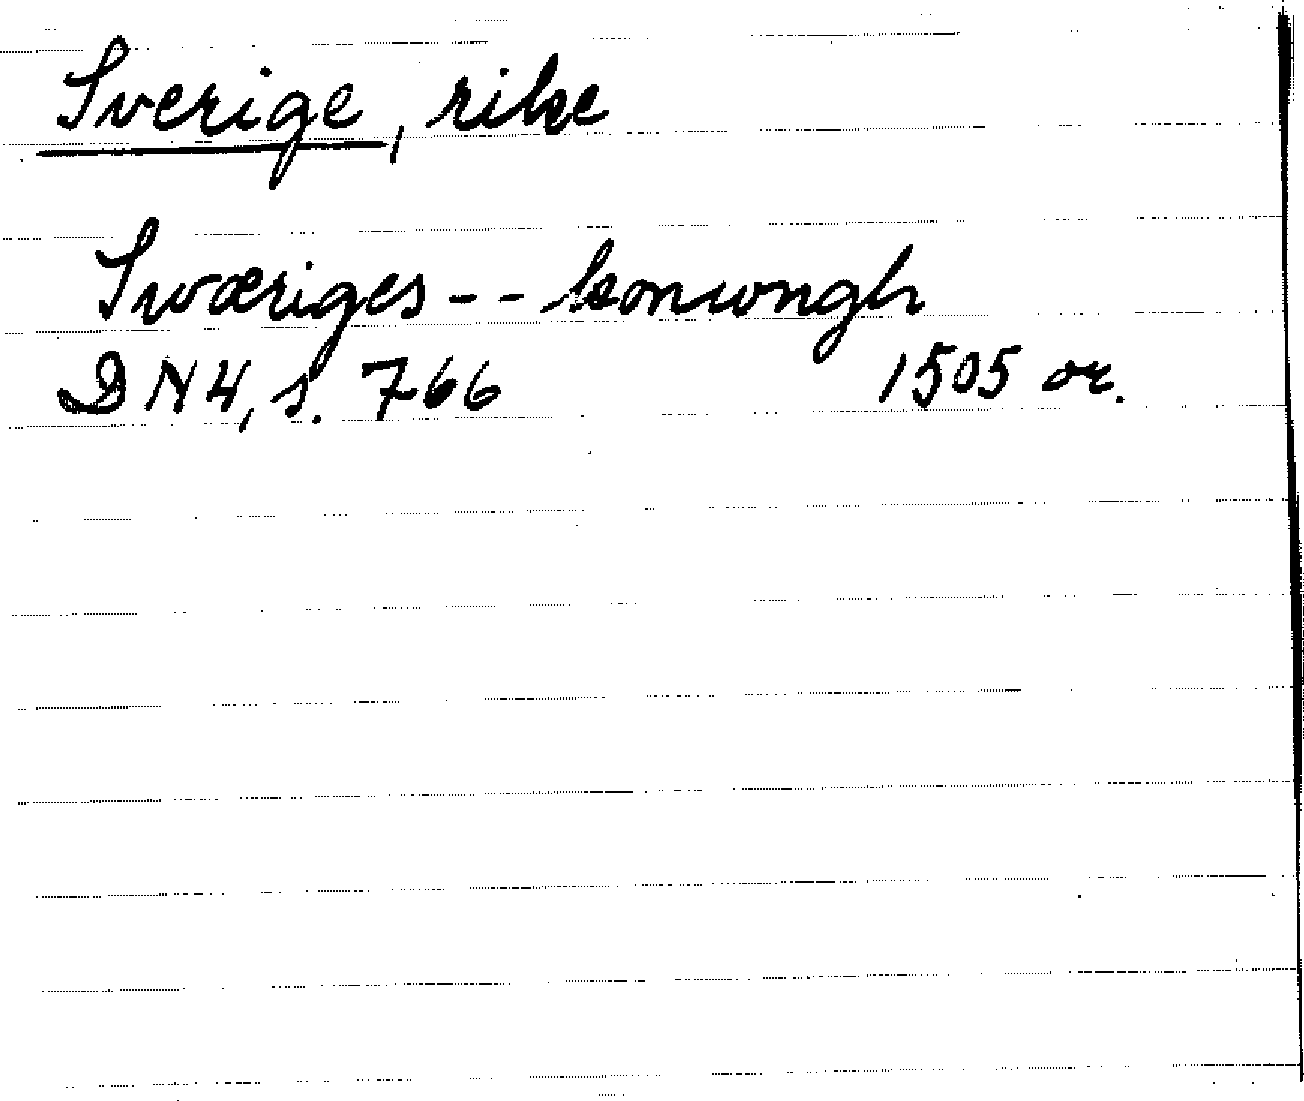 Sverige, rike
Swæriges -- konungh
DN 4, s. 766 1505 or.